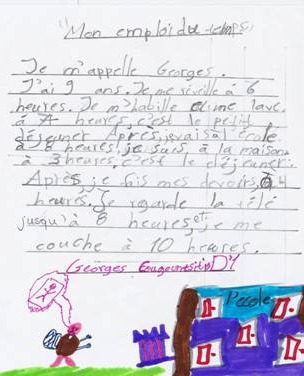 "Mon emploi du temps"
Je m'appelle Georges.
J'ai 9 ans. Je me réveille à 6
heures. Je m'habille et me lave.
à 7 heures, c'est le petit
déjeuner. Après, je vais à l'école
à 8 heures, je suis à la maison.
à 3 heures, c'est le déjeuner.
Après, je fais mes devoirs, à 4
heures. Je regarde la télé
jusqu'à 8 heures, et je me
couche à 10 heures.
Georges D1